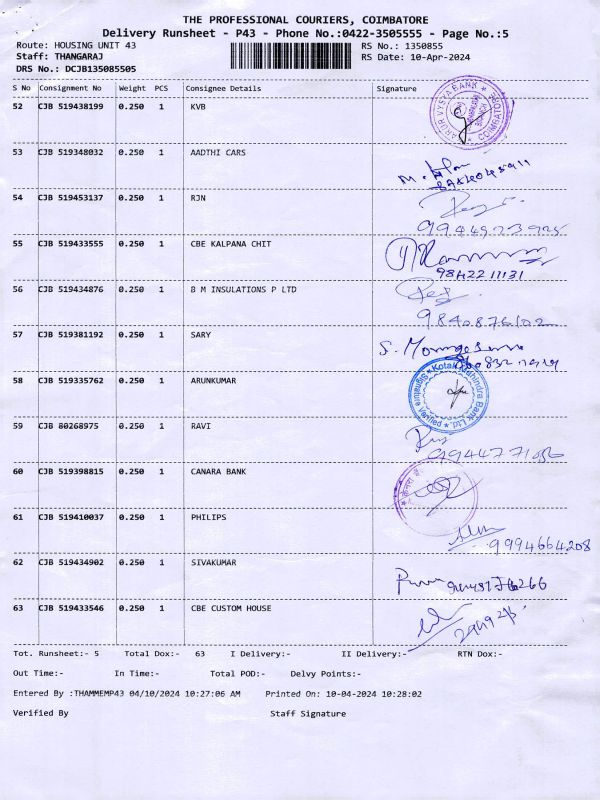 THE PROFESSIONAL COURIERS, COIMBATORE
Delivery Runsheet - P43 - Phone No.:0422-3505555 - Page No.:5
Route: HOUSING UNIT 43 RS No.: 1350855
Staff: THANGARAJ RS Date: 10-Apr-2024
DRS No.: DCJB135085505
S No Consignment No Weight PCS Consignee Details Signature
52 CJB 519438199 0.250 1 KVB
KARUR VYSYA BANK COIMBATORE BRANCH
53 CJB 519348032 0.250 1 AADTHI CARS
54 CJB 519453137 0.250 1 RJN
55 CJB 519433555 0.250 1 CBE KALPANA CHIT
9842211131
56 CJB 519434876 0.250 1 B M INSULATIONS P LTD
9840876102
57 CJB 519381192 0.250 1 SARY
58 CJB 519335762 0.250 1 ARUNKUMAR
Kotak Mahindra Bank Ltd. Signature Verified
59 CJB 80268975 0.250 1 RAVI
60 CJB 519398815 0.250 1 CANARA BANK
61 CJB 519410037 0.250 1 PHILIPS
9994664208
62 CJB 519434902 0.250 1 SIVAKUMAR
63 CJB 519433546 0.250 1 CBE CUSTOM HOUSE
Tot. Runsheet:- 5 Total Dox:- 63 I Delivery:- II Delivery:- RTN Dox:-
Out Time:- In Time:- Total POD:- Delvy Points:-
Entered By :THAMMEMP43 04/10/2024 10:27:06 AM Printed On: 10-04-2024 10:28:02
Verified By Staff Signature